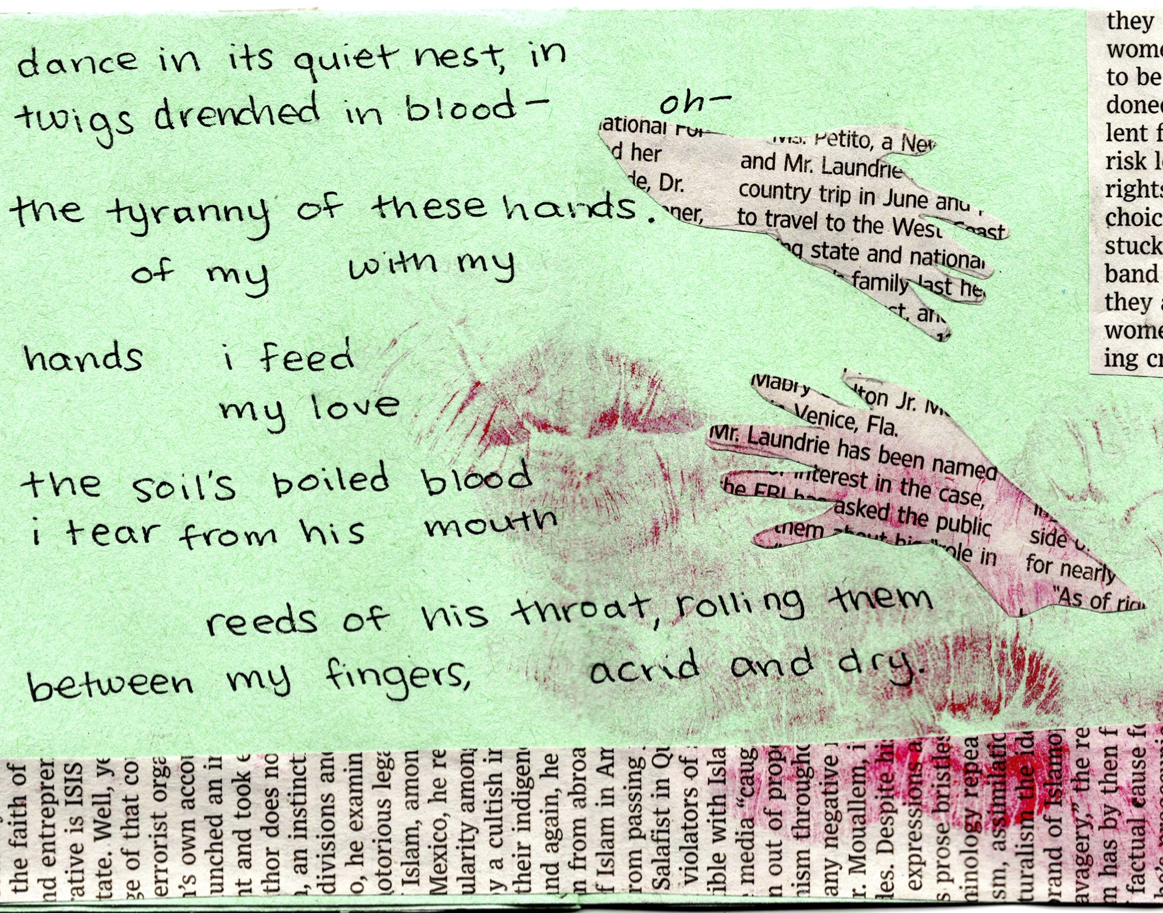 dance in its quiet nest, in
twigs drenched in blood—
oh—
the tyranny of these hands.
of my with my
hands i feed
my love
the soil's boiled blood
i tear from his mouth
reeds of his throat, rolling them
between my fingers, acrid and dry.
ational
d her
de, Dr.
ner,
Petito, a New
and Mr. Laundrie
country trip in June and
to travel to the West Coast
ng state and national
family last he
st, an
Mabry
lton Jr.
Venice, Fla.
Mr. Laundrie has been named
interest in the case,
the FBI has asked the public
them about his "role in
side
for nearly
"As of rig
they
wome
to be
doned
lent f
risk l
rights
choic
stuck
band
they a
wome
ing cr
the faith of
nd entrepren
rative is ISIS
tate. Well, ye
ge of that co
errorist orga
r's own accou
unched an in
nt and took
thor does no
, an instinct
divisions and
o, he examin
otorious lega
Islam, amon
Mexico, he re
ularity among
y a cultish in
their indigen
nd again, he
n from abroa
f Islam in Am
rom passing
Salafist in Qu
violators of
ible with Isla
media "caug
n out of prop
nism througho
any negative
r. Mouallem, i
les. Despite hi
expressions a
s prose bristles
minology repea
sm, assimilatio
turalism, the ide
brand of Islamop
avagery," the re
m has by then f
factual cause fo